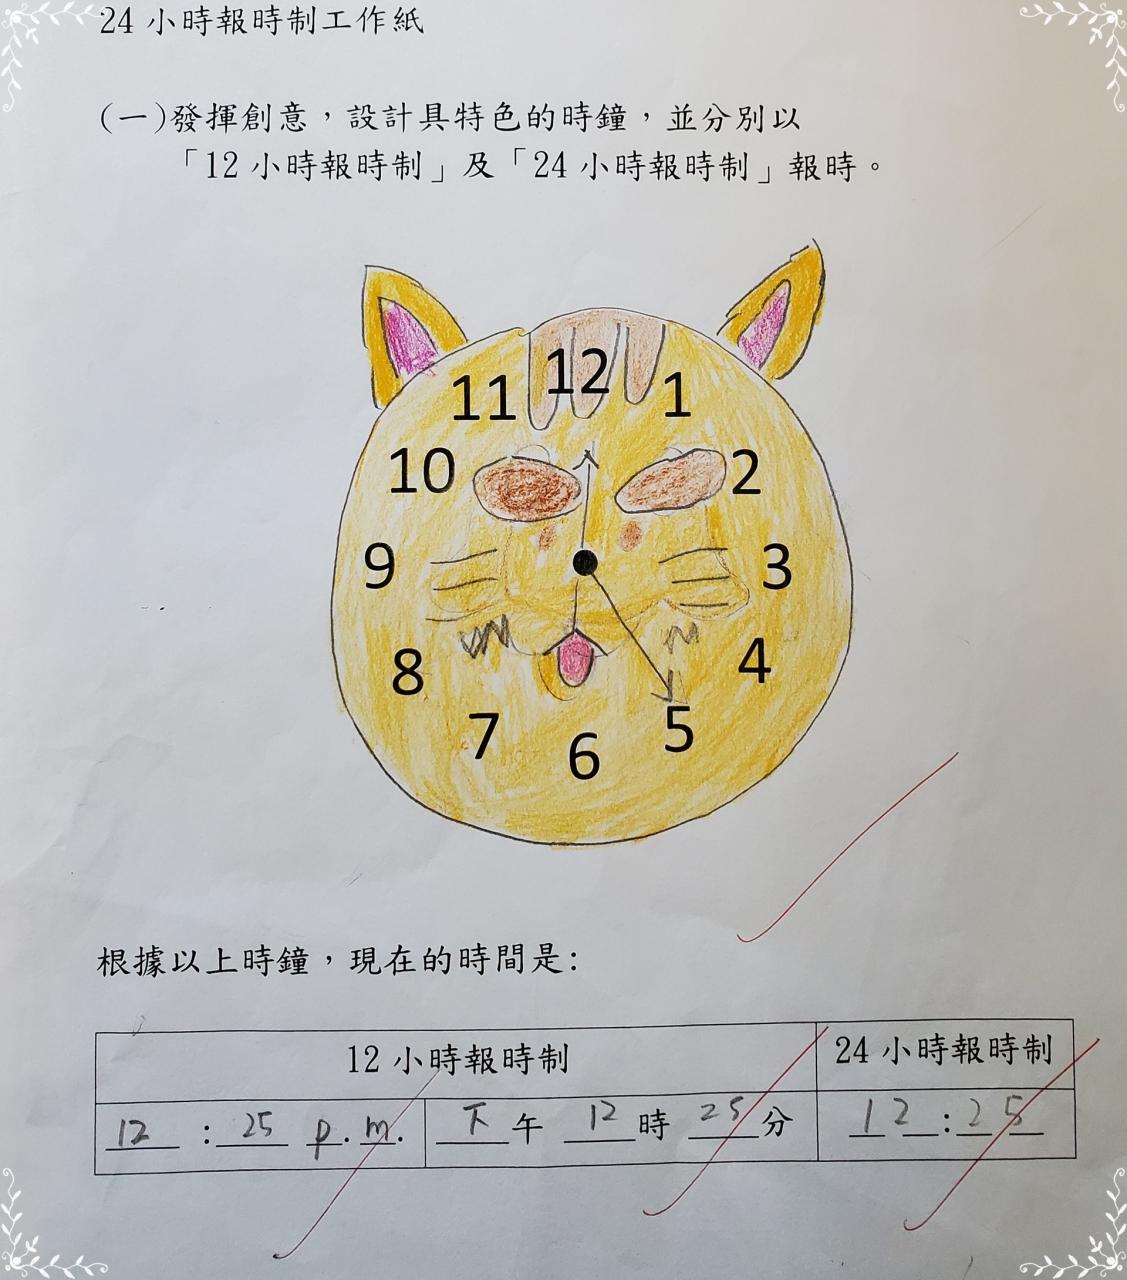 24 小時報時制工作紙
(一)發揮創意，設計具特色的時鐘，並分別以
「12 小時報時制」及「24 小時報時制」報時。
12
11 1
10 2
9 3
8 4
7 5
6
根據以上時鐘，現在的時間是:
12 小時報時制 24 小時報時制
12 : 25 p. m. 下午 12 時 25 分 12:25